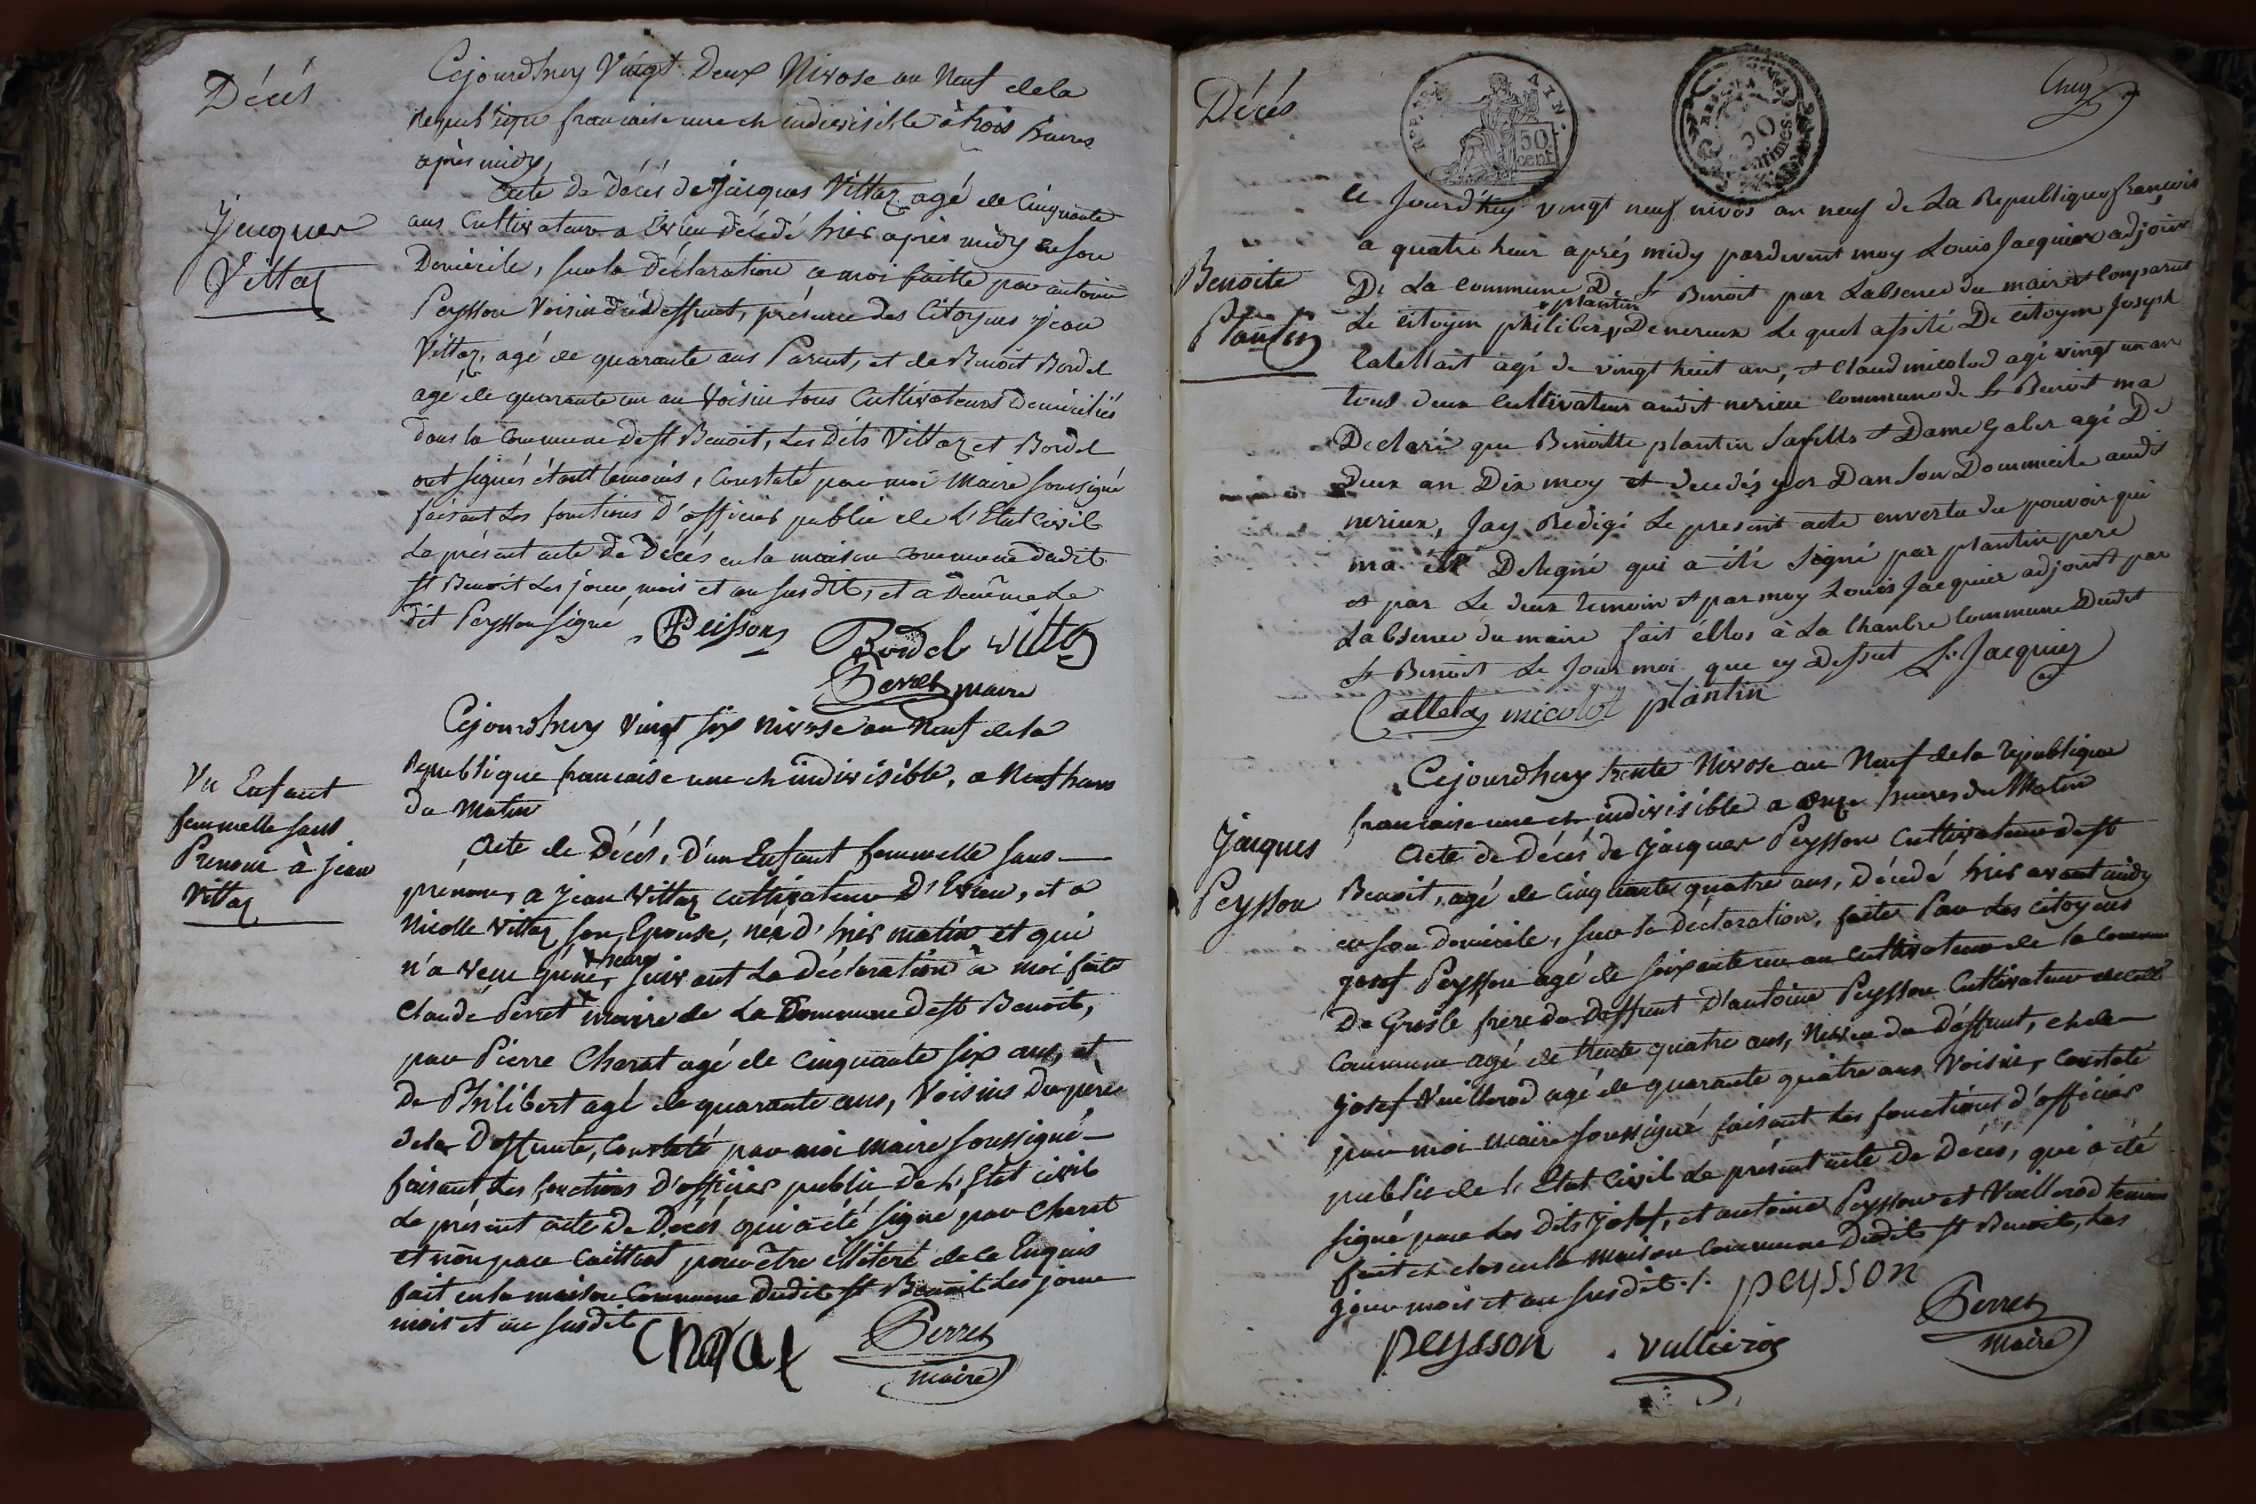 Décés
Cejourdhuy Vingt Deux Nivose an Neuf dela
republique francaise une et indivisible à trois heures
après midy,
Acte de Décés de Jacques Vittoz agé de Cinquante
Jacques
Vittoz
ans Cultivateur a Evieu décédé hier après midy en son
Domicile, sur la déclaration a moi faitte par antoine
Peysson Voisin du deffunt, présence des Citoyens Jean
Vittoz, agé de quarante ans Parent, et de Benoit Bordel
agé de quarante un an Voisin tous Cultivateurs Domiciliés
dans la Commune de St Benoit, Les dits Vittoz et Bordel
ont signés étant temoins, Constaté par moi Maire soussigné
faisant les fonctions d'officier public de L'Etat Civil
Le présent acte de Décés en la maison commune dudit
St Benoit Les jour, mois et an susdits, et a de même Le
dit Peysson signé
Peisson
Bordel Vittoz
Perret maire
Cejourdhuy Vingt six Nivose an Neuf dela
Republique francaise une et indivisible, a Neuf heures
du Matin
Un Enfant
femmelle sans
Prenom à Jean
Vittoz
Acte de Décés, d'un Enfant femmelle sans
prénoms a Jean Vittoz cultivateur D'Evieu, et a
Nicolle Vittoz son Epouse, née d'hier matin et qui
n'a vecu qu'une heure, suivant La déclaration à moi faite
Claude Perret maire de La Commune de St Benoit,
par Pierre Charat agé de cinquante six ans, et
De Philibert agé de quarante ans, Voisins du père
dela Deffunte, Constaté par moi Maire soussigné
faisant Les fonctions d'officier public De L'Etat civil
Le présent acte De Décés qui a été signé par Charat
et non par pour être illiteré de ce Enquis
fait en la maison Commune Dudit St Benoit Les jour
mois et an susdit
Charat
Perret
maire
Décés
REP. FRA.
50
cent.
50
centimes
Le Jourd'huy vingt neuf nivos an neuf de La Republique françois
a quatre heur aprés midy pardevent moy Louis Jacquier adjoint
Benoite
Plantin
De La commune De St Benoit par Labsence du maire Comparut
Le citoyen philibert plantin De nerieux Le quel assité De citoyen Joseph
Catellait agé de vingt huit an, et Claud micolod agé vingt un an
tous deux Cultivateur audit nerieu Commune de St Benoit ma
Declaré que Benoitte plantin Safille et Dame Gaber agé De
Deux an Dix moy et decedé yer Dan Son Dommicile audit
nerieux, Jay Redigé Le present acte envertu du pouvoir qui
ma été Delegué qui a été Signé par plantin pere
et par Le deux temoin et par moy Louis Jacquier adjoint par
Labsence du maire fait éttos à La Chanbre Commune Dudit
St Benoit Le Jour moi que cy Dessut L. Jacquier
Cattela micolot plantin
Cejourdhuy trente Nivose an Neuf dela république
francaise une et indivisible a onze heures du Matin
Jacques
Peysson
Acte de Décés de Jacques Peysson Cultivateur de St
Benoit, agé de Cinquante quatre ans, décédé hier avant midy
en son domicile, sur la déclaration, faite par Les citoyens
Josef Peysson agé de soixante un an cultivateur de la Commune
De Groslé frère du Deffunt d'antoine Peysson Cultivateur de cette
Commune agé de trente quatre ans, Neveu du Déffunt, et de
Josef Vuillerod agé de quarante quatre ans Voisin, Constaté
par moi maire soussigné faisant Les fonctions d'officier
public de l'Etat Civil Le présent acte De Décés, qui a été
signé par Les dits Josef, et antoine Peysson et Vuillerod temoin
fait et clos en la maison commune Dudit St Benoit, Les
jour mois et an susdit ./. peysson
peysson
Perret
maire